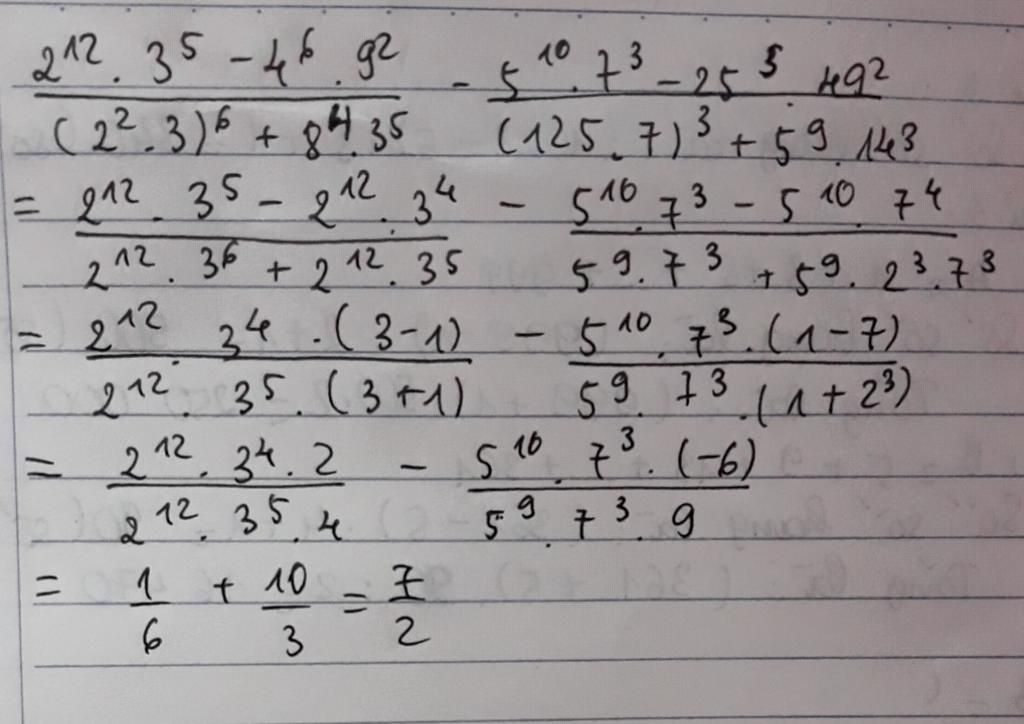 (2¹² . 3⁵ - 4⁶ . 9²) / ((2² . 3)⁶ + 8⁴ . 3⁵) - (5¹⁰ . 7³ - 25⁵ . 49²) / ((125 . 7)³ + 5⁹ . 14³)
= (2¹² . 3⁵ - 2¹² . 3⁴) / (2¹² . 3⁶ + 2¹² . 3⁵) - (5¹⁰ . 7³ - 5¹⁰ . 7⁴) / (5⁹ . 7³ + 5⁹ . 2³ . 7³)
= (2¹² . 3⁴ . (3 - 1)) / (2¹² . 3⁵ . (3 + 1)) - (5¹⁰ . 7³ . (1 - 7)) / (5⁹ . 7³ . (1 + 2³))
= (2¹² . 3⁴ . 2) / (2¹² . 3⁵ . 4) - (5¹⁰ . 7³ . (-6)) / (5⁹ . 7³ . 9)
= 1/6 + 10/3 = 7/2